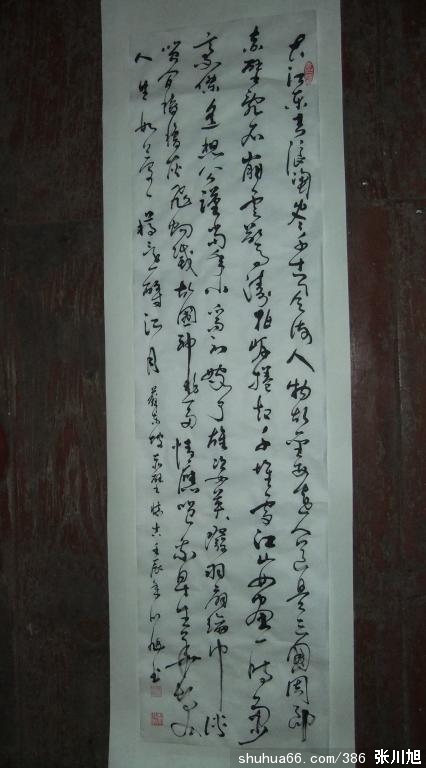 大江东去浪淘尽千古风流人物故垒西边人道是三國周郎
赤壁乱石崩雲惊涛拍岸捲起千堆雪江山如画一时多少
豪傑遥想公瑾当年小乔初嫁了雄姿英發羽扇纶巾谈
笑间樯橹灰飛烟灭故國神游多情應笑我早生华发
人生如梦一樽还酹江月 蘇东坡赤壁怀古壬辰年川旭书
shuhua66.com/386 张川旭